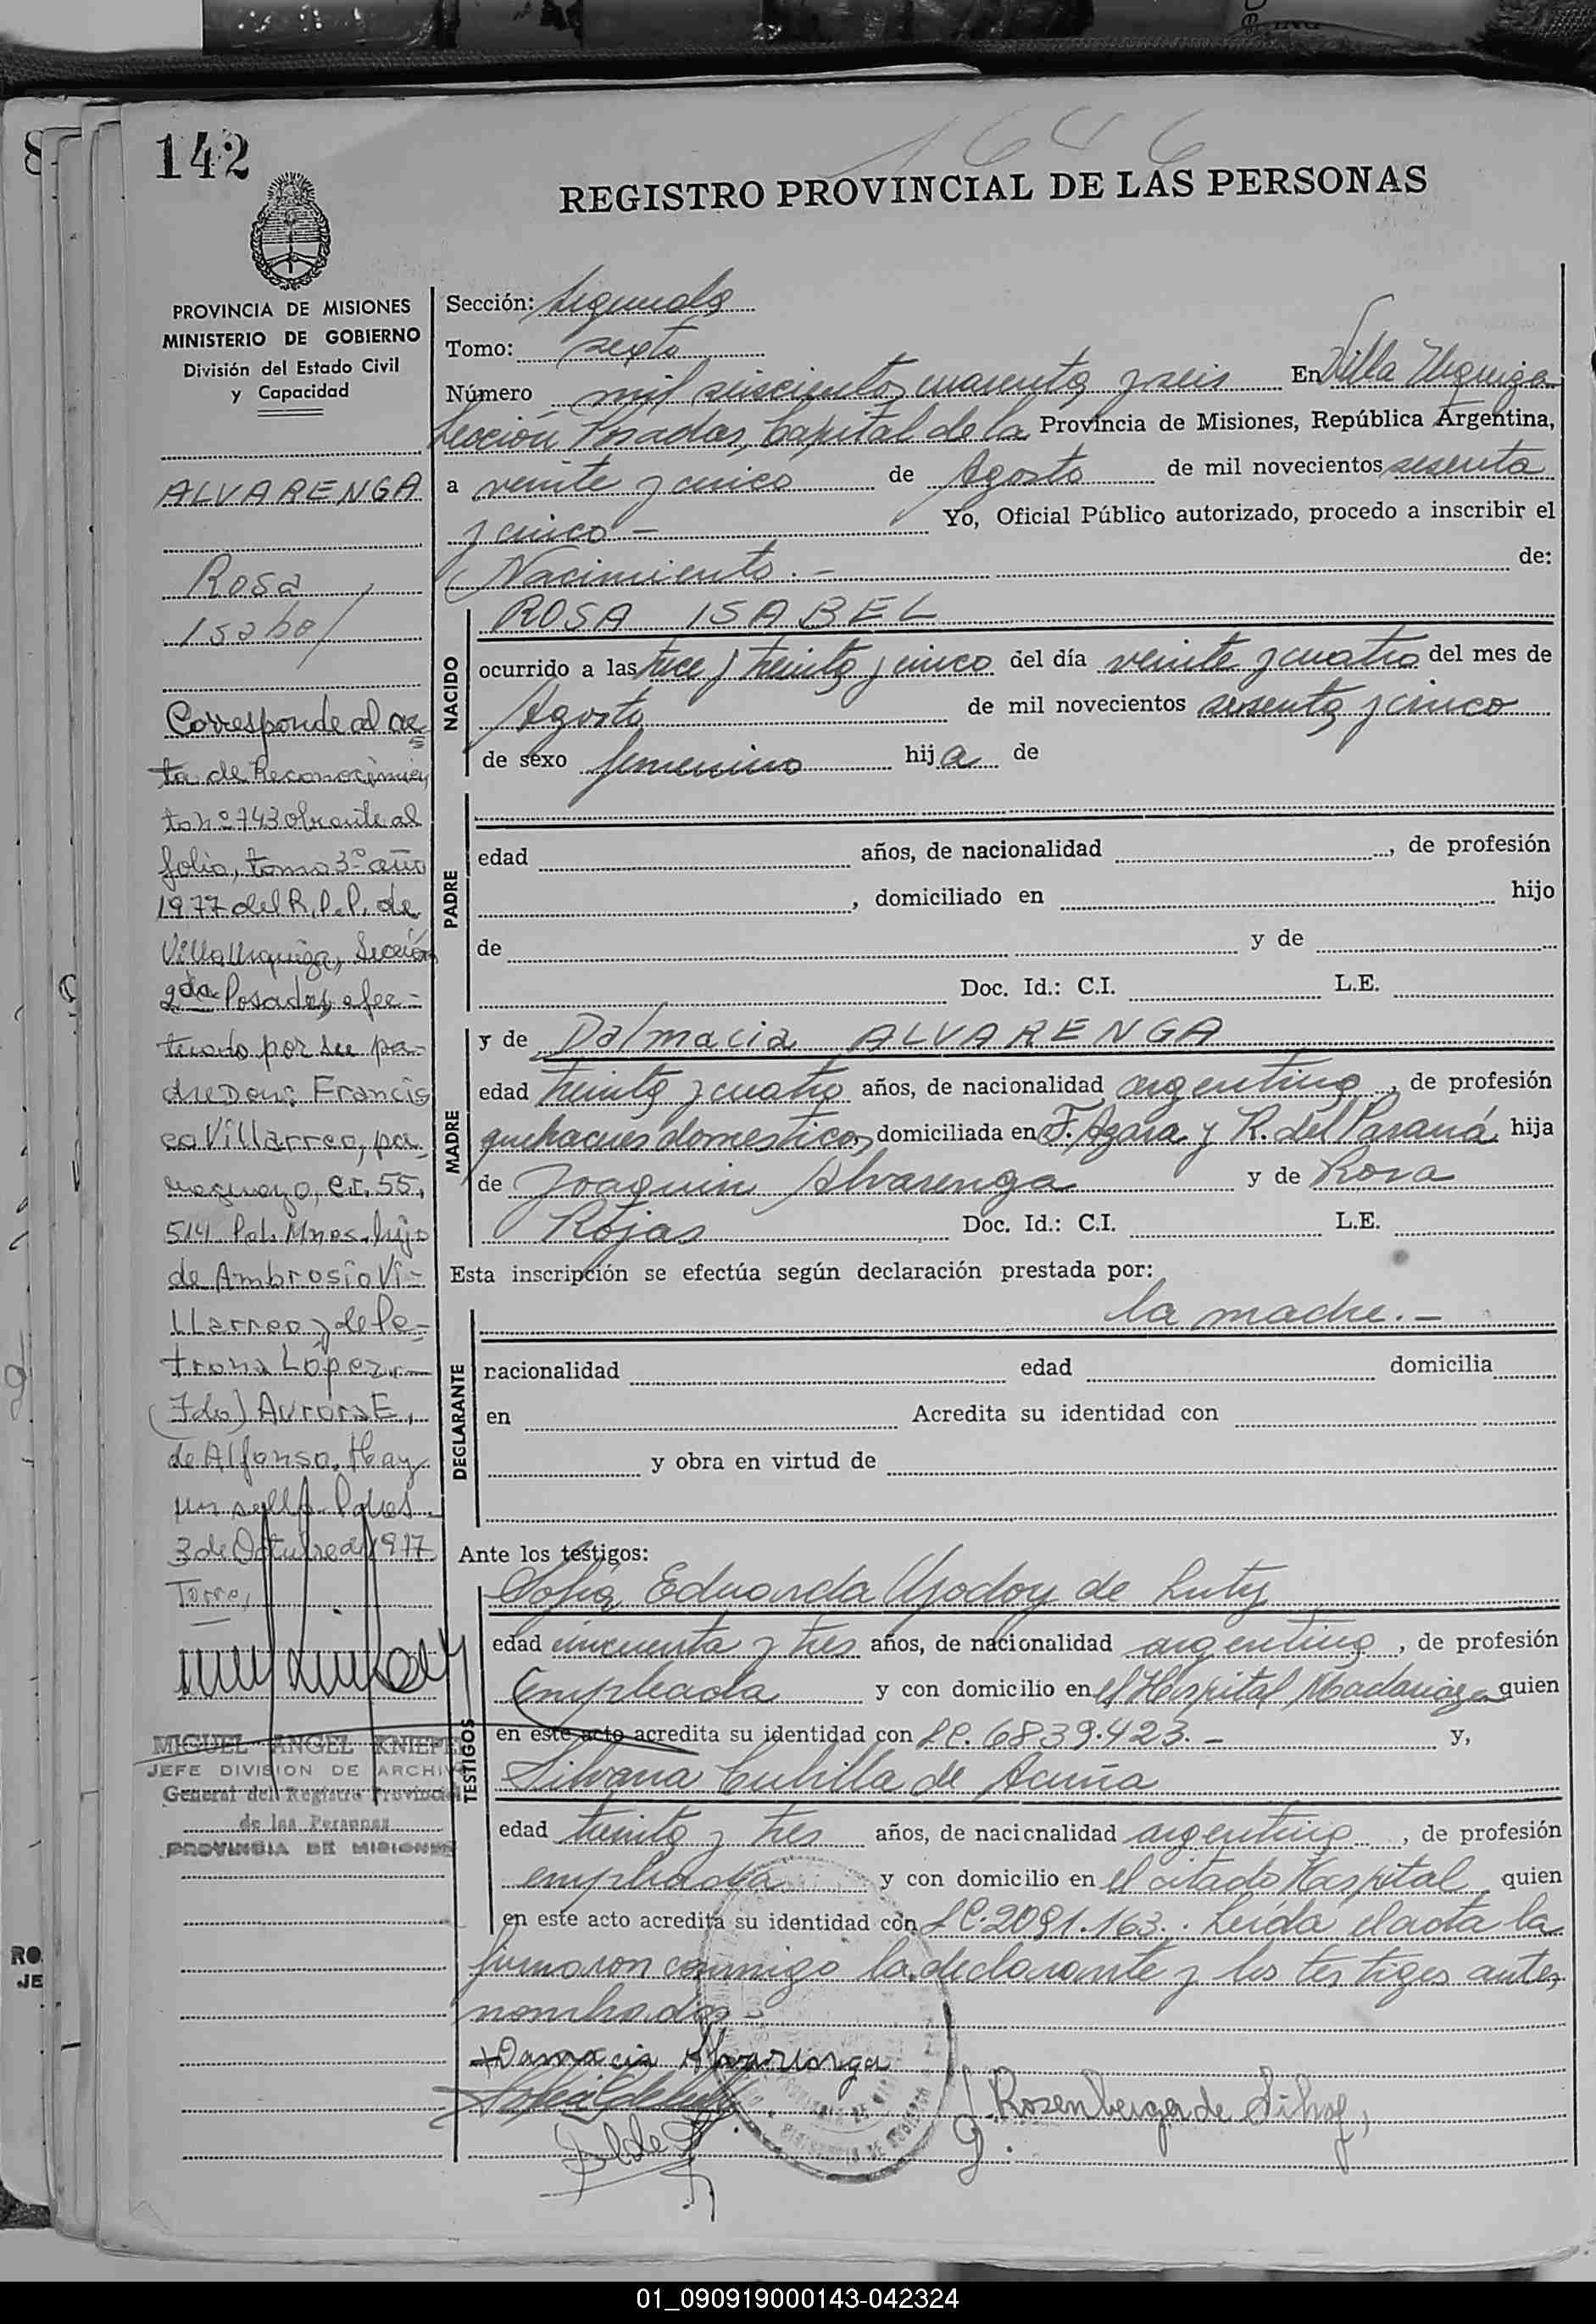 142
1646
REGISTRO PROVINCIAL DE LAS PERSONAS
PROVINCIA DE MISIONES
MINISTERIO DE GOBIERNO
División del Estado Civil
y Capacidad
ALVARENGA
Rosa
Isabel
Corresponde al ac
ta de Reconocimien
to nº 743 obrante al
folio, tomo 3º año
1977 del R.P.P. de
Villa Urquiza, Sección
2da Posadas, efec-
tuado por su pa-
dre Don: Francis
co Villarreo, pa-
raguayo, C.I. 55.
514 Pol. Mnes. hijo
de Ambrosio Vi-
llarreo y de Pe-
trona López.-
(Fdo) Aurora E.
de Alfonso. Hay
un sello. Pdas.
3 de Octubre de 1977
Torre,
MIGUEL ANGEL KNIEPE
JEFE DIVISION DE ARCHIV
General del Registro Provincial
de las Personas
PROVINCIA DE MISIONES
Sección: Segunda
Tomo: sexto
Número mil seiscientos cuarenta y seis En Villa Urquiza
Sección Posadas, Capital de la Provincia de Misiones, República Argentina,
a veinte y cinco de Agosto de mil novecientos sesenta
y cinco - Yo, Oficial Público autorizado, procedo a inscribir el
Nacimiento.- de:
NACIDO
ROSA ISABEL
ocurrido a las trece y treinta y cinco del día veinte y cuatro del mes de
Agosto de mil novecientos sesenta y cinco
de sexo femenino hija de
PADRE
edad años, de nacionalidad , de profesión
, domiciliado en hijo
de y de
Doc. Id.: C.I. L.E.
MADRE
y de Dalmacia ALVARENGA
edad treinta y cuatro años, de nacionalidad argentina, de profesión
quehaceres domesticos, domiciliada en F. Azara y R. del Paraná hija
de Joaquin Alvarenga y de Rosa
Rojas Doc. Id.: C.I. L.E.
Esta inscripción se efectúa según declaración prestada por:
DECLARANTE
la madre.-
nacionalidad edad domicilia
en Acredita su identidad con
y obra en virtud de
Ante los testigos:
TESTIGOS
Sofia Eduarda Godoy de Luty
edad cincuenta y tres años, de nacionalidad argentina, de profesión
Empleada y con domicilio en el Hospital Madariaga quien
en este acto acredita su identidad con LC. 6839.423.- y,
Silvana Cubilla de Acuña
edad treinta y tres años, de nacionalidad argentina, de profesión
empleada y con domicilio en el citado Hospital quien
en este acto acredita su identidad con LC. 2091.163. Leída el acta la
firmaron conmigo la declarante y los testigos ante,
nombrados-
Damacia Alvarenga
Rosenberga de Silva,
RO
JE
01_090919000143-042324